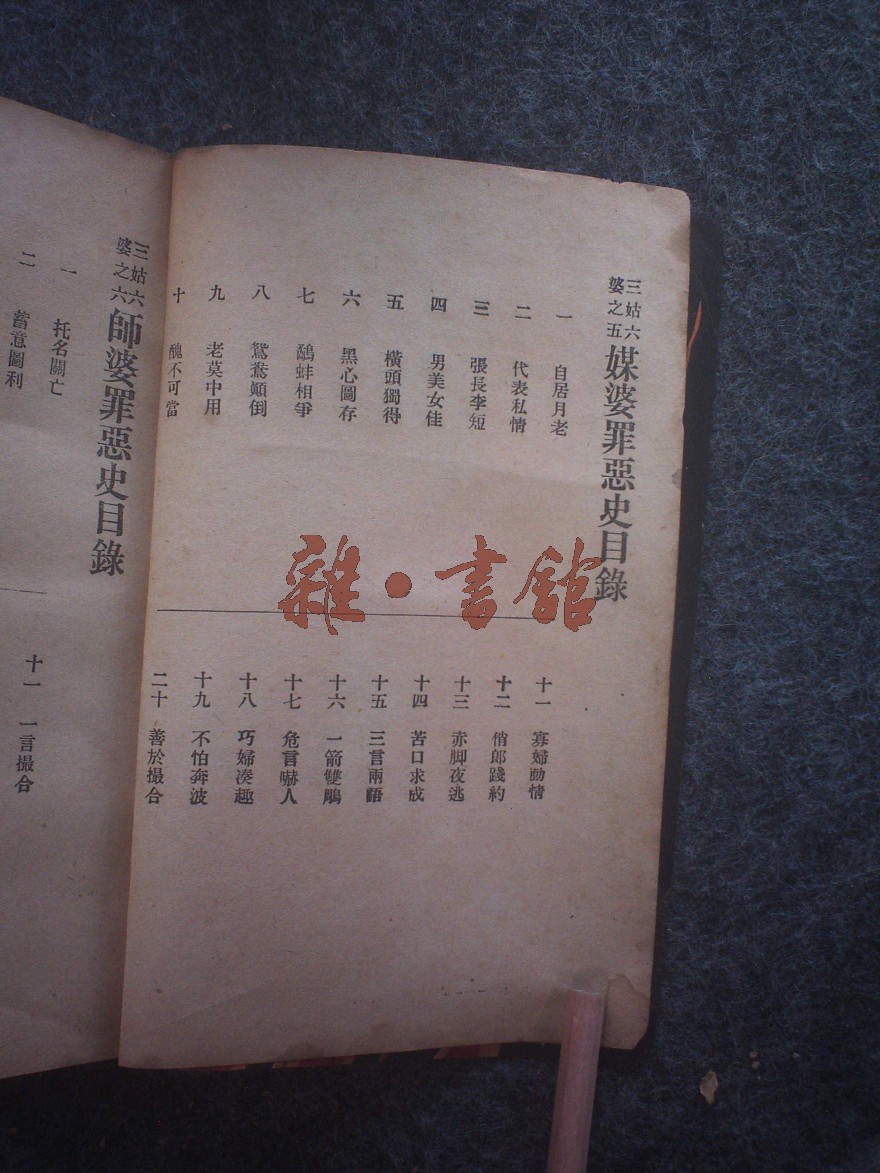 三姑六婆之五 媒婆罪惡史目錄
一 自居月老
二 代表私情
三 張長李短
四 男美女佳
五 橫頭獨得
六 黑心圖存
七 鷸蚌相爭
八 鴛鴦顚倒
九 老莫中用
十 醜不可當
十一 寡婦動情
十二 俏郎踐約
十三 赤脚夜逃
十四 苦口求成
十五 三言兩語
十六 一箭雙鵰
十七 危言嚇人
十八 巧婦湊趣
十九 不怕奔波
二十 善於撮合
三姑六婆之六 師婆罪惡史目錄
一 托名關亡
二 蓄意圖利
十一 一言撮合
雜·書館